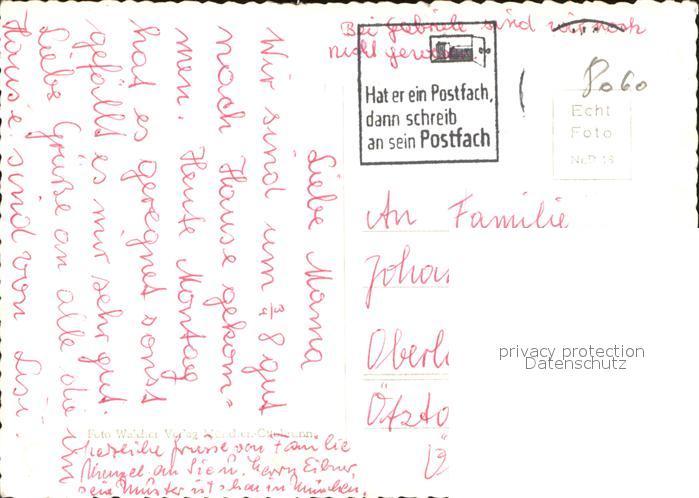 Bei Gabriele sind wir noch
nicht gewesen.
Hat er ein Postfach,
dann schreib
an sein Postfach
8060
Echt
Foto
An Familie
Johan
Oberl
Ötzta
privacy protection
Datenschutz
Liebe Mama
Wir sind um ¾ 8 gut
nach Hause gekom=
men. Heute Montag
hat es geregnet sonst
gefällt es mir sehr gut.
Liebe Grüße an alle die im
Hause sind von Lisi.
Foto Walcher Verlag
herzliche Grüsse von Familie
Menzel an Sie u. Harry
sein Münster ist schon in München.